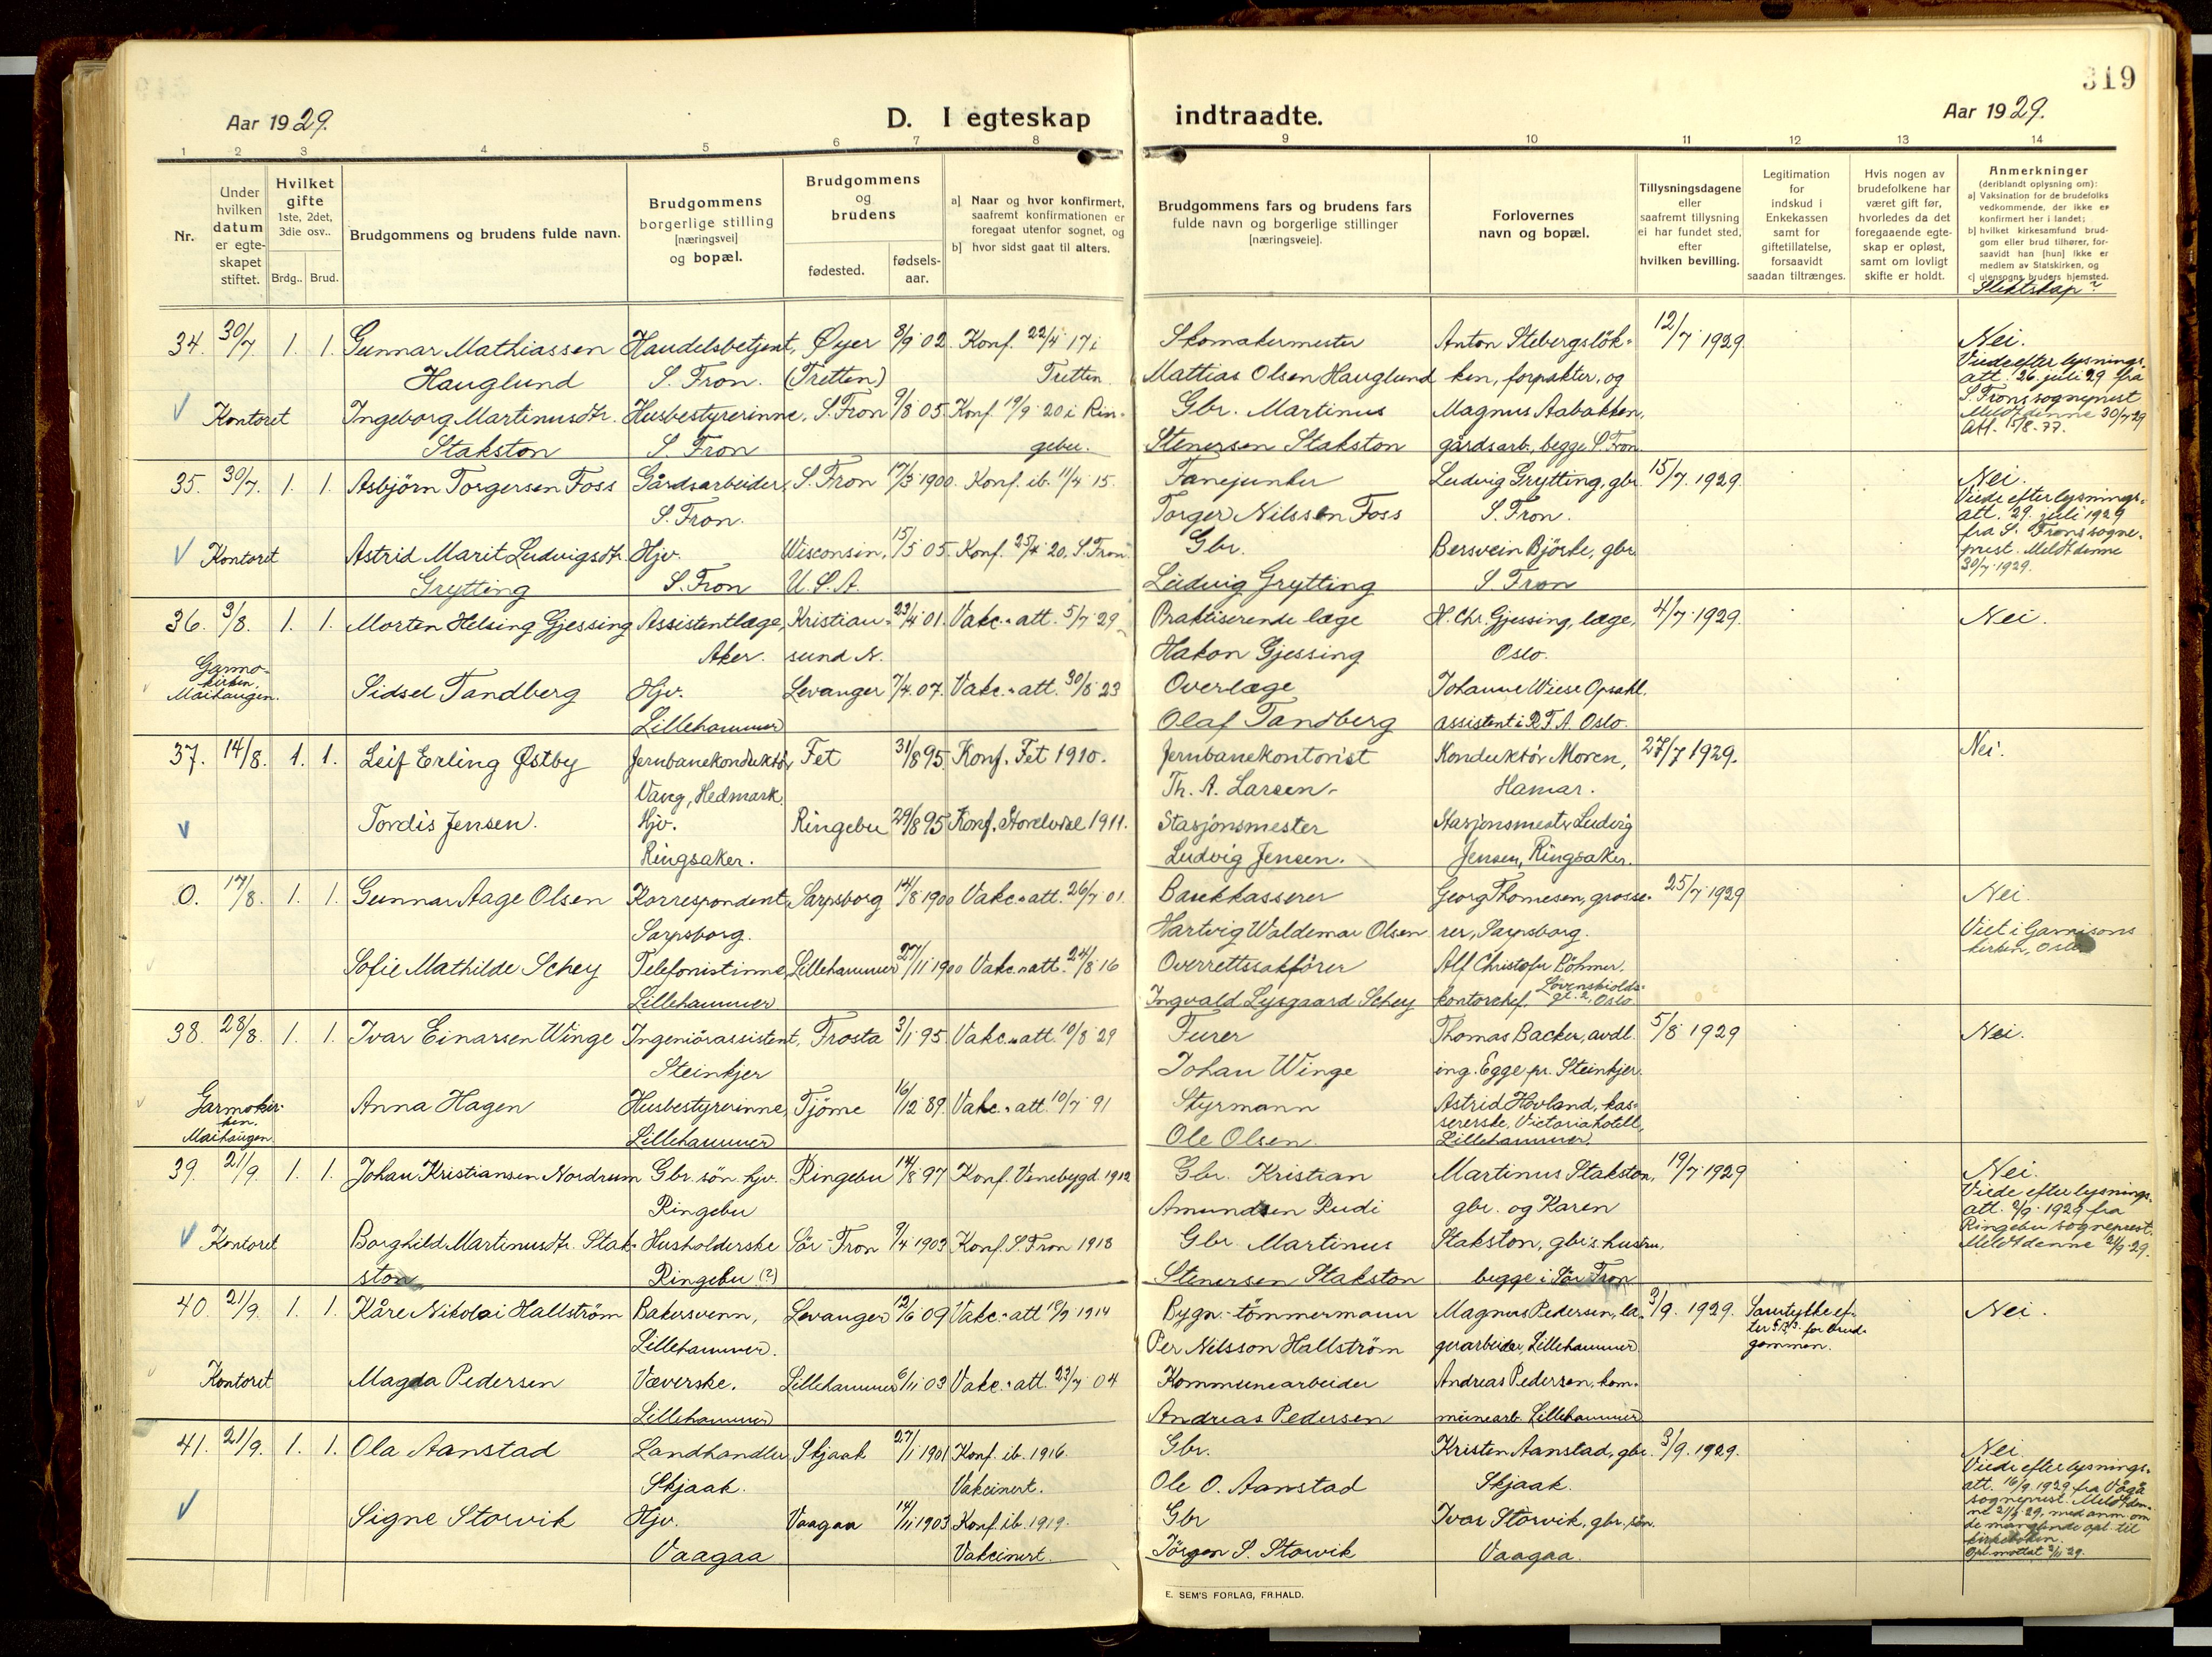 319
Aar 1929.
D. I egteskap indtraadte.
Aar 1929.
1 2 3 4 5 6 7 8 9 10 11 12 13 14
Nr.
Under hvilken datum er egteskapet stiftet.
Hvilket gifte 1ste, 2det, 3die osv..
Brdg.. Brud.
Brudgommens og brudens fulde navn.
Brudgommens borgerlige stilling [næringsvei] og bopæl.
Brudgommens og brudens
fødested.
fødsels-aar.
a] Naar og hvor konfirmert, saafremt konfirmationen er foregaat utenfor sognet, og
b] hvor sidst gaat til alters.
Brudgommens fars og brudens fars fulde navn og borgerlige stillinger [næringsveie].
Forlovernes navn og bopæl.
Tillysningsdagene eller saafremt tillysning ei har fundet sted, efter hvilken bevilling.
Legitimation for indskud i Enkekassen samt for giftetillatelse, forsaavidt saadan tiltrænges.
Hvis nogen av brudefolkene har været gift før, hvorledes da det foregaaende egteskap er opløst, samt om lovligt skifte er holdt.
Anmerkninger
(deriblandt oplysning om):
a] Vaksination for de brudefolks vedkommende, der ikke er konfirmert her i landet;
b] hvilket kirkesamfund brudgom eller brud tilhører, forsaavidt han [hun] ikke er medlem av Statskirken, og
c] utensogns bruders hjemsted.
Slektskap?
34. 30/7. 1. 1. Gunnar Mathiassen Handelsbetjent, Øyer 8/9 02. Konf. 22/4 17 i Skomakermester Anton Stebergsløk- 12/7 1929 Nei.
Hauglund S. Fron. (Tretten) Tretten Mattias Olsen Hauglund ken, forpakter, og Viede efter lysnings-
att. 26. juli 29 fra
Kontoret Ingeborg Martinusdtr. Husbestyrerinne, S. Fron 9/8 05. Konf. 19/9 20 i Rin- Gbr. Martinus Magnus Aabakken, S. Frons sogneprest
Meldt denne 30/7 29
Stakston S. Fron gebu. Stenersen Stakston gårdsarb., begge S. Fron. Att. 15/8. 77.
35. 30/7. 1. 1. Asbjörn Torgersen Foss Gårdsarbeider, S. Fron 17/3 1900. Konf. ib. 11/4 15. Fanejunker Ludvig Grytting, gbr. 15/7. 1929. Nei.
S. Fron. Torger Nilssen Foss S. Fron. Viede efter lysnings-
att. 29. juli 1929
Kontoret Astrid Marit Ludvigsdtr. Hjv. Wisconsin, 15/5 05. Konf. 25/4 20, S. Fron. Gbr. Bersvein Björke, gbr. fra S. Frons sogne-
prest. Meldt denne
Grytting S. Fron U.S.A. Ludvig Grytting S. Fron 30/7 1929.
36. 3/8. 1. 1. Morten Helsing Gjessing Assistentlæge, Kristian- 23/4 01. Vakc. att. 5/7 29 Praktiserende læge H. Chr. Gjessing, læge, 4/7 1929. Nei.
Aker. sund N. Hakon Gjessing Oslo.
Garmo-
kirken,
Maihaugen. Sidsel Tandberg Hjv. Levanger 7/4. 07. Vakc. att. 30/5 23 Overlæge Johanne Wiese Opsahl,
Lillehammer Olaf Tandberg assistent i R.T.A. Oslo.
37. 14/8. 1. 1. Leif Erling Østby Jernbanekonduktör Fet 31/8 95. Konf. Fet 1910. Jernbanekontorist Konduktör Moren, 27/7 1929. Nei.
Vang, Hedmark. Th. A. Larsen Hamar.
Tordis Jensen. Hjv. Ringebu 29/8 95 Konf. Storelvdal 1911. Stasjonsmester Stasjonsmester Ludvig
Ringsaker. Ludvig Jensen. Jensen, Ringsaker.
0. 17/8. 1. 1. Gunnar Aage Olsen Korrespondent, Sarpsborg 14/8 1900 Vakc. att. 26/7 01. Bankkasserer Georg Thomesen, grosse- 25/7 1929 Nei.
Sarpsborg. Hartvig Waldemar Olsen rer, Sarpsborg. Viet i Garnisons
kirken, Oslo
Sofie Mathilde Schey Telefonistinne, Lillehammer 27/11 1900 Vakc. att. 24/8 16 Overrettssakförer Alf Christofer Böhmer,
Lillehammer Ingvald Lysgaard Schey kontorchef. Lövenskiolds-
gt. 2, Oslo
38. 28/8. 1. 1. Ivar Einarsen Winge Ingeniörassistent, Frosta 3/1 95. Vakc. att. 10/8 29 Furer Thomas Backer, avdl. 5/8 1929 Nei.
Steinkjer Johan Winge ing. Egge pr. Steinkjer.
Garmokir-
ken.
Maihaugen Anna Hagen Husbestyrerinne, Tjöme 16/12 89. Vakc. att. 10/7 91 Styrmann Astrid Hovland, kas-
sererske, Victoria hotell,
Lillehammer Ole Olsen. Lillehammer.
39. 21/9. 1. 1. Johan Kristiansen Nordrum Gbr. sön. hjv. Ringebu 14/8 97 Konf. Venebygd 1912 Gbr. Kristian Martinus Stakston, 19/7 1929 Nei.
Ringebu Amundsen Rudi gbr. og Karen Viede efter lysnings-
att. 2/9 1929 fra
Kontoret Borghild Martinusdtr. Stak- Husholderske Sör-Fron 9/4 1903 Konf. S. Fron 1918 Gbr. Martinus Stakston, gbr.s hustru, Ringebu sogneprest.
Meldt denne 21/9 29.
ston Ringebu (?) Stenersen Stakston begge i Sör Fron
40. 21/9. 1. 1. Kåre Nikolai Hallström Bakersvenn, Levanger 12/6 09 Vakc. att 18/9 1914 Bygn. tömmermann Magnus Pedersen, la- 3/9. 1929. Samtykke ef- Nei.
ter for brud-
Lillehammer. Per Nilsson Hallström gerarbeider, Lillehammer gommen.
Kontoret Magda Pedersen Væverske. Lillehammer 6/11 03 Vakc. att. 23/7 04 Kommunearbeider Andreas Pedersen, kom-
Lillehammer Andreas Pedersen munearb. Lillehammer
41. 21/9. 1. 1. Ola Aanstad Landhandler, Skjaak 27/1 1901 Konf. ib. 1916. Gbr. Kristen Aanstad, gbr. 3/9. 1929. Nei
Skjaak. Vakcinert. Ole O. Aanstad Skjaak. Viede efter lysnings-
att. 16/9 1929 fra Vågå
sogneprest. Meldt den-
Signe Storvik Hjv. Vaagaa 14/11 1903 Konf. ib. 1919. Gbr Ivar Storvik, gbr. sön. ne 21/9 29. med anm. om
de manglende opl. til
kirkeboken.
Vaagaa Vakcinert. Jörgen S. Storvik Vaagaa. Opl. mottat 2/11 29.
E. SEM'S FORLAG, FR.HALD.